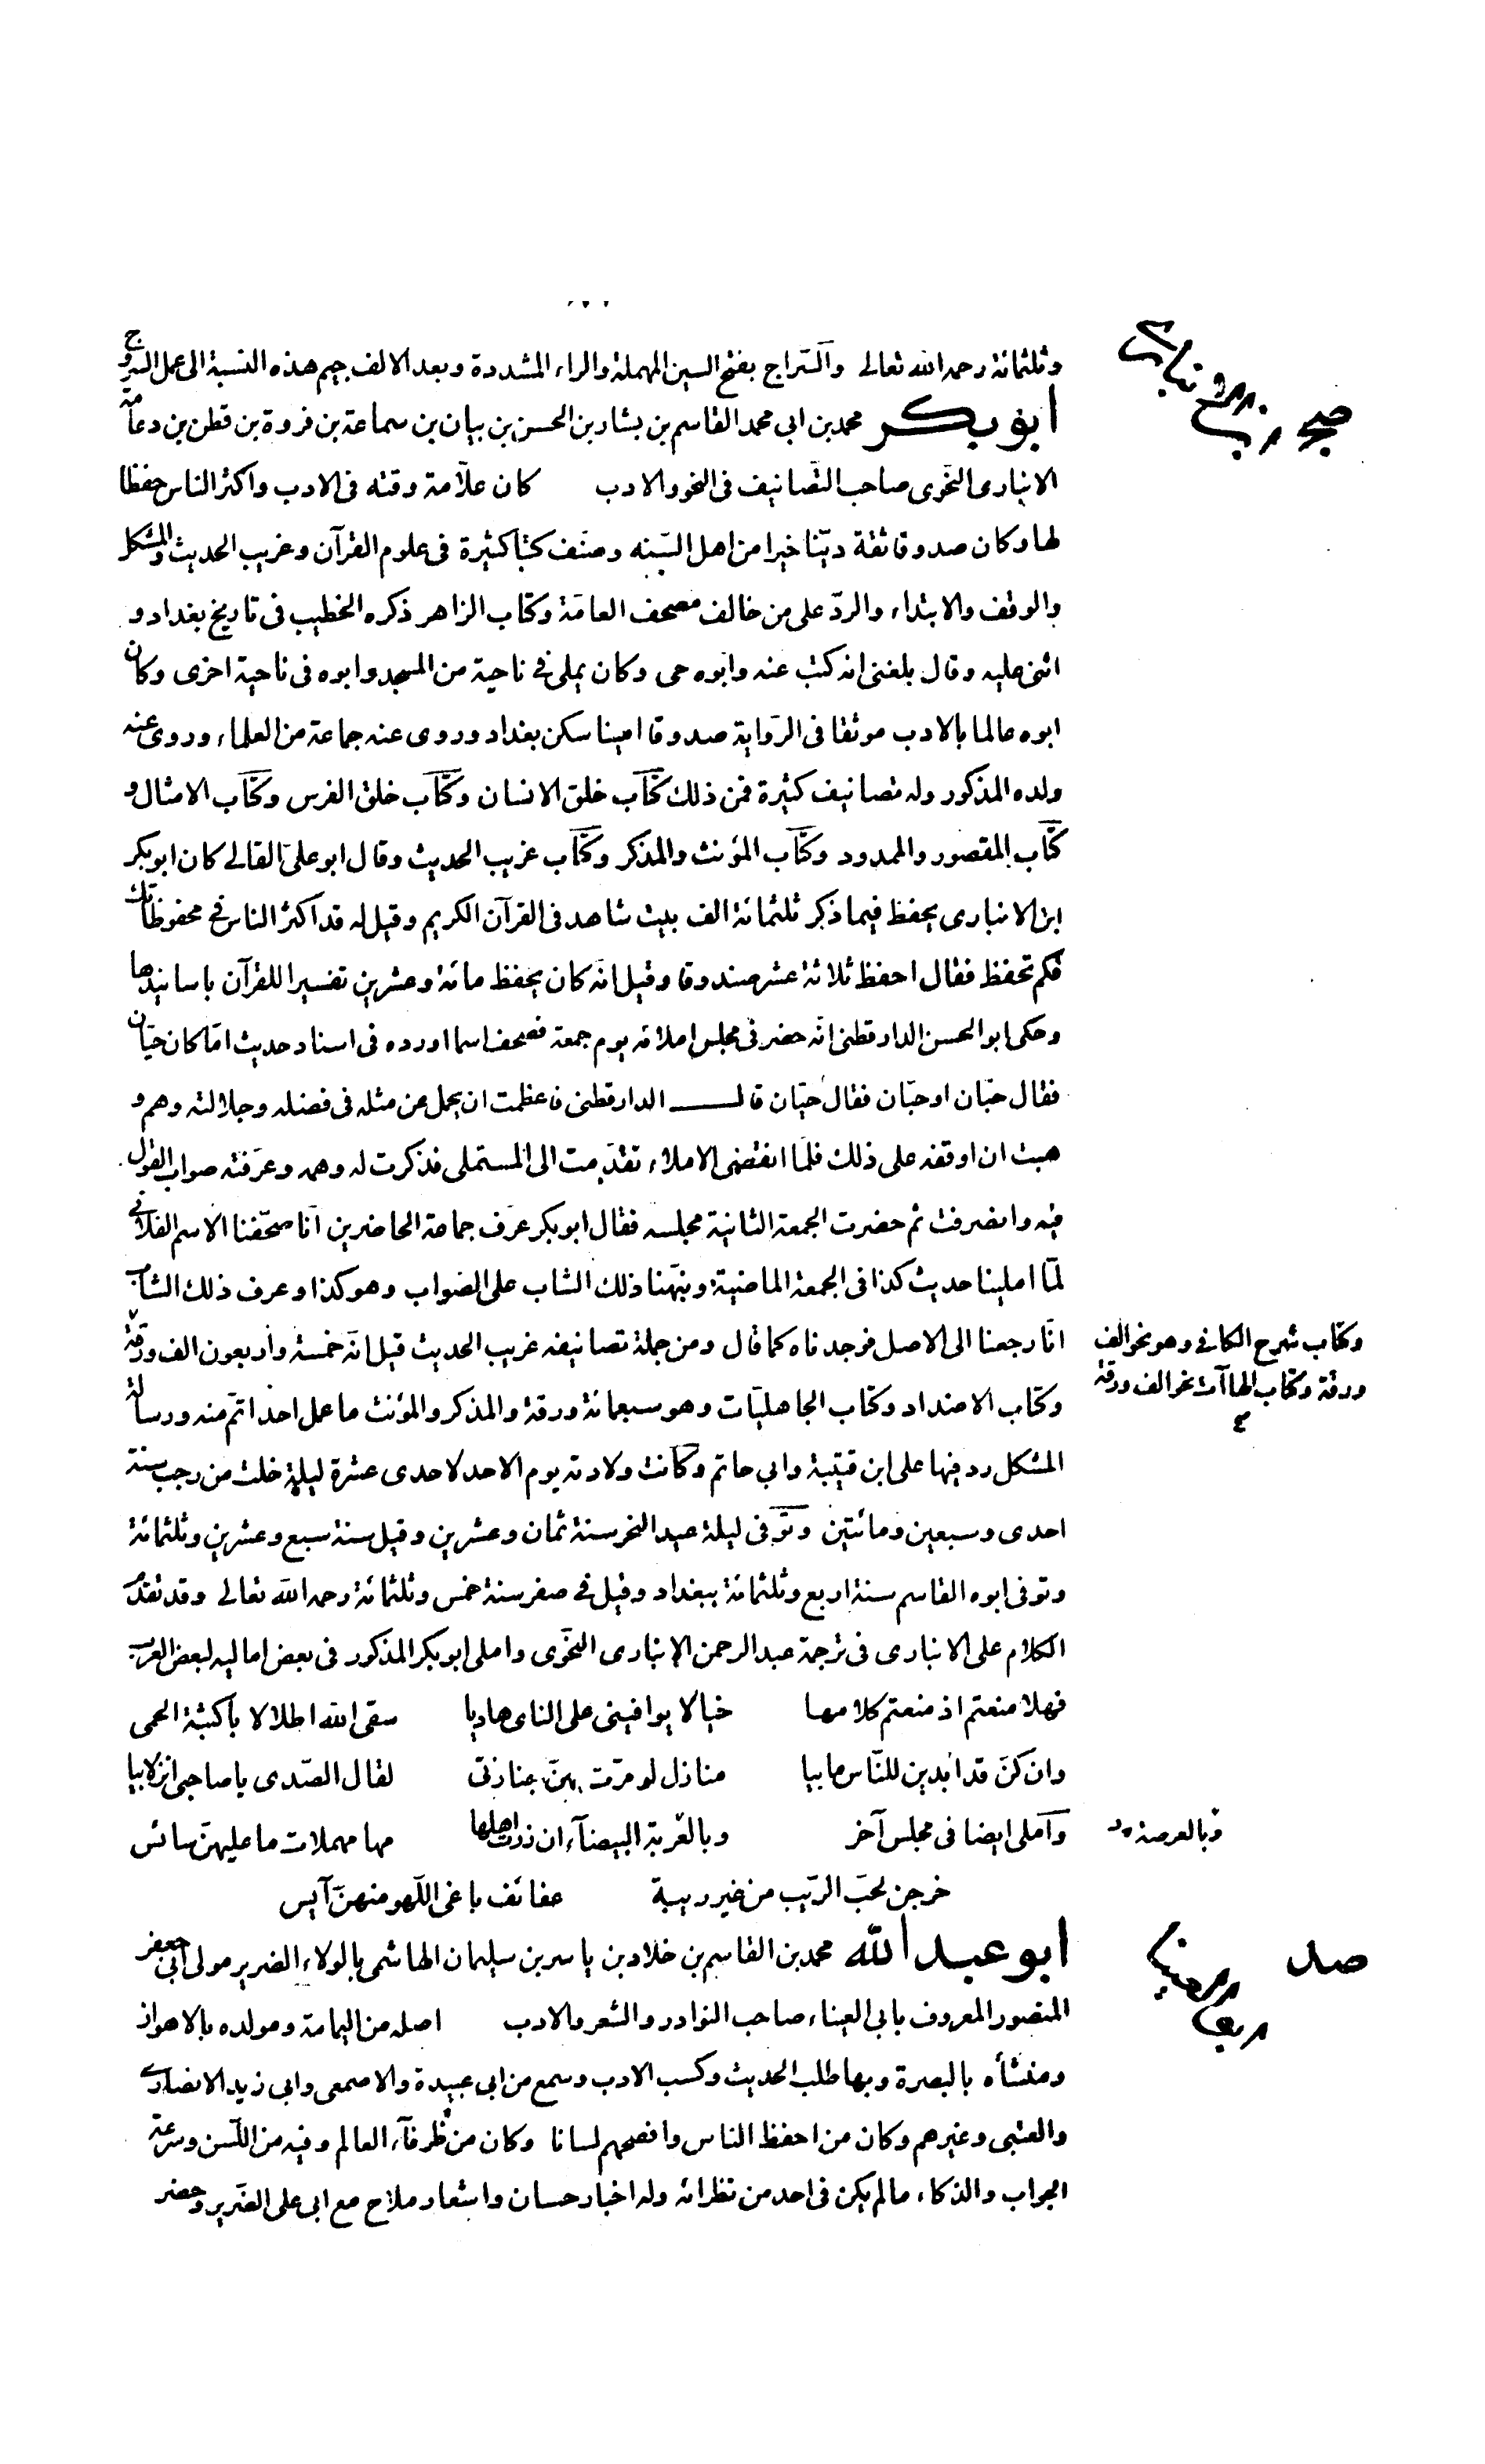 وثلثمائة رحمه الله تعالى والسّراج بفتح السين المهملة والراء المشددة وبعد الالف جيم هذه النسبة الى عمل السروج
ابو بكر محمد بن ابى محمد القاسم بن بشار بن الحسن بن بيان بن سماعة بن فروة بن قطن بن دعامة
الانبارى النحوى صاحب التصانيف فى النحو والادب كان علّامة وقته فى الادب واكثر الناس حفظا
لها وكان صدوقا ثقة ديّنا خيرا من اهل السّنه وصنّف كتبا كثيرة فى علوم القرآن وغريب الحديث والمشكل
والوقف والابتداء والردّ على من خالف مصحف العامّة وكتاب الزاهر ذكره الخطيب فى تاريخ بغداد و
اثنى عليه وقال بلغنى انه كتب عنه وابوه حى وكان يملى فى ناحية من المسجد وابوه فى ناحية اخرى وكان
ابوه عالما بالادب موثقا فى الرّواية صدوقا امينا سكن بغداد وروى عنه جماعة من العلماء وروى عنه
ولده المذكور وله تصانيف كثيرة فمن ذلك كتاب خلق الانسان وكتاب خلق الفرس وكتاب الامثال و
كتاب المقصور والممدود وكتاب المؤنث والمذكر وكتاب غريب الحديث وقال ابو على القالى كان ابو بكر
ابن الانبارى يحفظ فيما ذكر ثلثمائة الف بيت شاهد فى القرآن الكريم وقيل له قد اكثر الناس فى محفوظاتك
فكم تحفظ فقال احفظ ثلاثة عشر صندوقا وقيل انّه كان يحفظ مائة وعشرين تفسيرا للقرآن باسانيدها
وحكى ابو الحسن الدارقطنى انّه حضر فى مجلس املائه يوم جمعة فصحف اسما اورده فى اسناد حديث امّا كان حيّان
فقال حبّان او حبّان فقال حيّان قال الدارقطنى فاعظمت ان يحمل عن مثله فى فضله وجلالته وهم و
هبت ان اوقفه على ذلك فلمّا انقضى الاملاء تقدّمت الى المستملى فذكرت له وهمه وعرّفته صواب القول
فيه وانصرفت ثم حضرت الجمعة الثانية مجلسه فقال ابو بكر عرّف جماعة الحاضرين انّا صحّفنا الاسم الفلانى
لمّا املينا حديث كذا فى الجمعة الماضية ونبّهنا ذلك الشاب على الصواب وهو كذا وعرف ذلك الشاب
انّا رجعنا الى الاصل فوجدناه كما قال ومن جملة تصانيفه غريب الحديث قيل انّه خمسة واربعون الف ورقة
وكتاب شرح الكافى وهو نحو الف
ورقة وكتاب الهاآت نحو الف ورقة
وكتاب الاضداد وكتاب الجاهليّات وهو سبعمائة ورقة والمذكر والمؤنث ما عمل احدا تمّ منه ورسالة
المشكل رد فيها على ابن قتيبة وابى حاتم وكانت ولادته يوم الاحد لاحدى عشرة ليلة خلت من رجب سنة
احدى وسبعين ومائتين وتوفى ليلة عيد النحر سنة ثمان وعشرين وقيل سنة سبع وعشرين وثلثمائة
وتوفى ابوه القاسم سنة اربع وثلثمائة ببغداد وقيل فى صفر سنة خمس وثلثمائة رحمه الله تعالى وقد تقدم
الكلام على الانبارى فى ترجمة عبد الرحمن الانبارى النحوى واملى ابو بكر المذكور فى بعض اماليه لبعض العرب
فهلا منعتم اذ منعتم كلامها خيالا يوافينى على النأى هاديا سقى الله اطلالا باكثبة الحمى
وان كنّ قد ابدين للنّاس ما بيا منازل لو مرّت بهنّ جنازتى لقال الصّدى يا صاحبى انزلا بيا
واملى ايضا فى مجلس آخر وبالعربة البيضآء ان زرت اهلها مها مهملات ما عليهنّ سائس
وبالعرصة
خرجن لحبّ الرّيب من غير ريبة عفائف باغى اللّهو منهنّ آيس
ابو عبد الله محمد بن القاسم بن خلاد بن ياسر بن سليمان الهاشمى بالولاء الضرير مولى ابى جعفر
المنصور المعروف بابى العيناء صاحب النوادر والشعر والادب اصله من اليمامة ومولده بالاهواز
ومنشأه بالبصرة وبها طلب الحديث وكسب الادب وسمع من ابى عبيدة والاصمعى وابى زيد الانصارى
والعتبى وغيرهم وكان من احفظ الناس وافصحهم لسانا وكان من ظرفآء العالم وفيه من اللّسن وسرعة
الجواب والذكاء ما لم يكن فى احد من نظرائه وله اخبار حسان واشعار ملاح مع ابى على الضرير وحضر